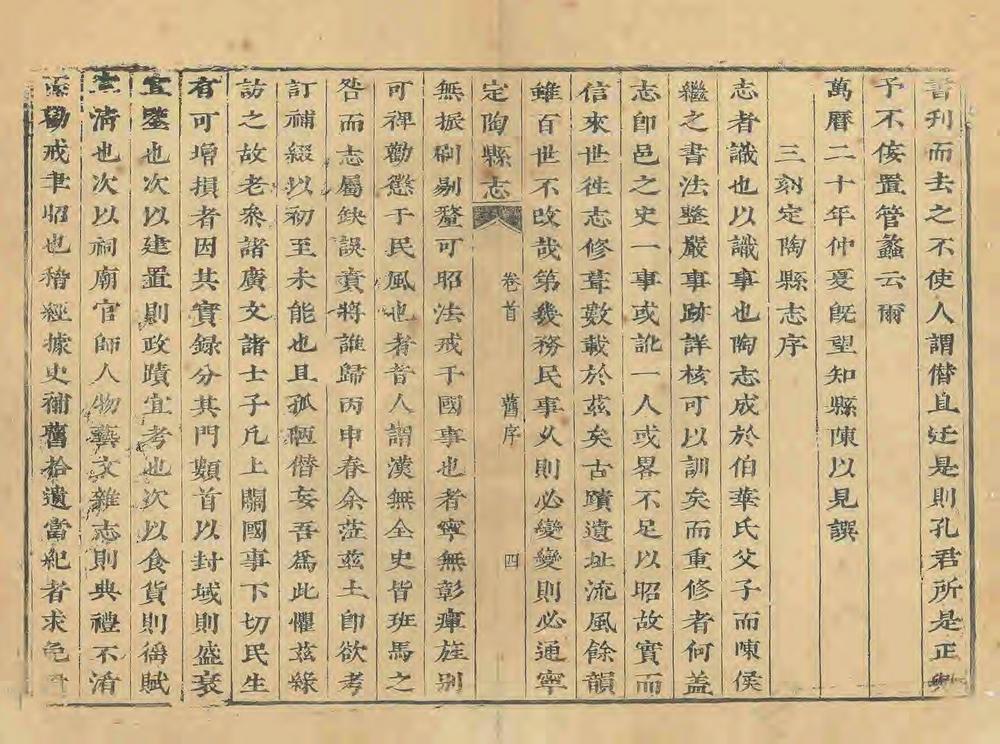 書刊而去之不使人謂僣且迃是則孔君所是正
予不侫置管蠡云爾
萬曆二十年仲夏旣望知縣陳以見譔
三刻定陶縣志序
志者識也以識事也陶志成於伯華氏父子而陳侯
繼之書法整嚴事跡詳核可以訓矣而重修者何蓋
志卽邑之史一事或訛一人或畧不足以昭故實而
信來世徃志修葺數載於茲矣古蹟遺址流風餘韻
雖百世不改哉第幾務民事乆則必變變則必通寧
定陶縣志 卷首 舊序 四
無振刷剔釐可昭法戒于國事也者寧無彰癉旌别
可裨勸懲于民風也者昔人謂漢無全史皆班馬之
咎而志屬缺誤責將誰歸丙申春余蒞茲土卽欲考
訂補綴以初至未能也且孤陋僣妄吾爲此懼茲縁
訪之故老叅諸廣文諸士子凢上關國事下切民生
有可增損者因其實録分其門類首以封域則盛衰
宜鑒也次以建置則政蹟宜考也次以食貨則徭賦
宜清也次以祠廟官師人物藝文雜志則典禮不淆
勸戒聿昭也稽經據史補舊拾遺當紀者求